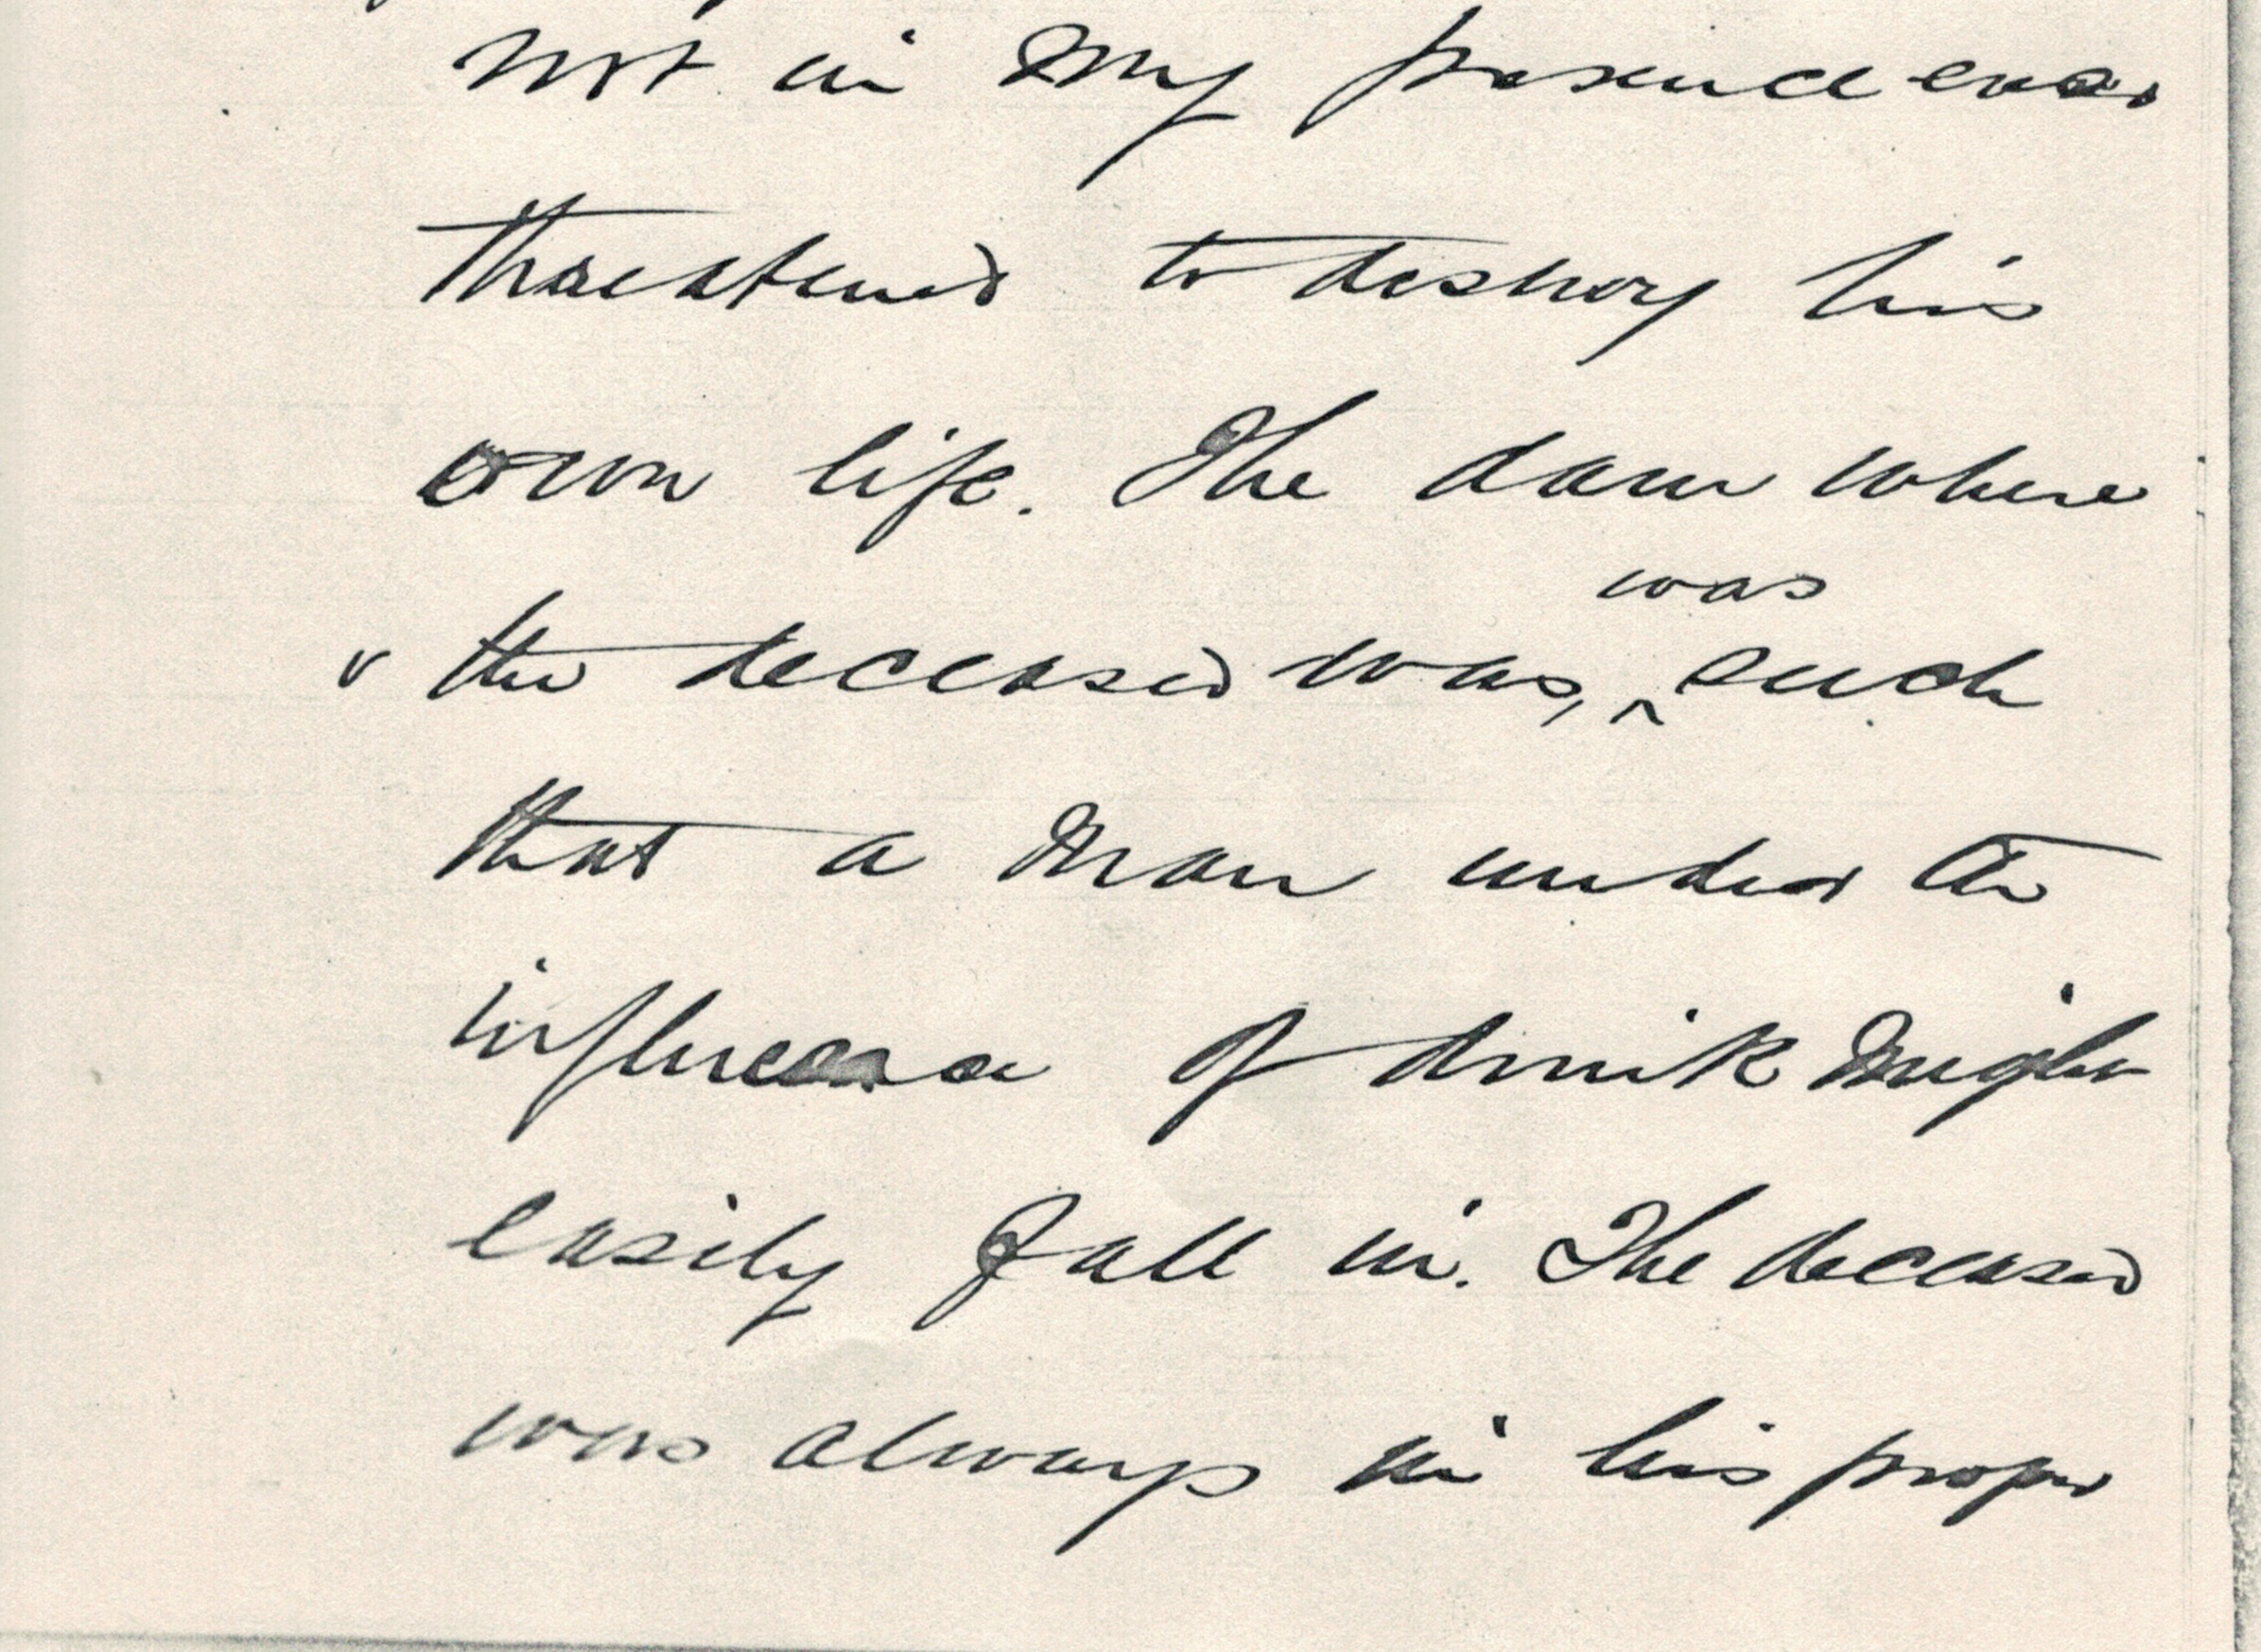 not in my presence ever
threatened to destroy his
own life. The dam where
was
v the deceased was, ^ such
that a man under the
influence of drink might
easily fall in. The deceased
was always in his proper